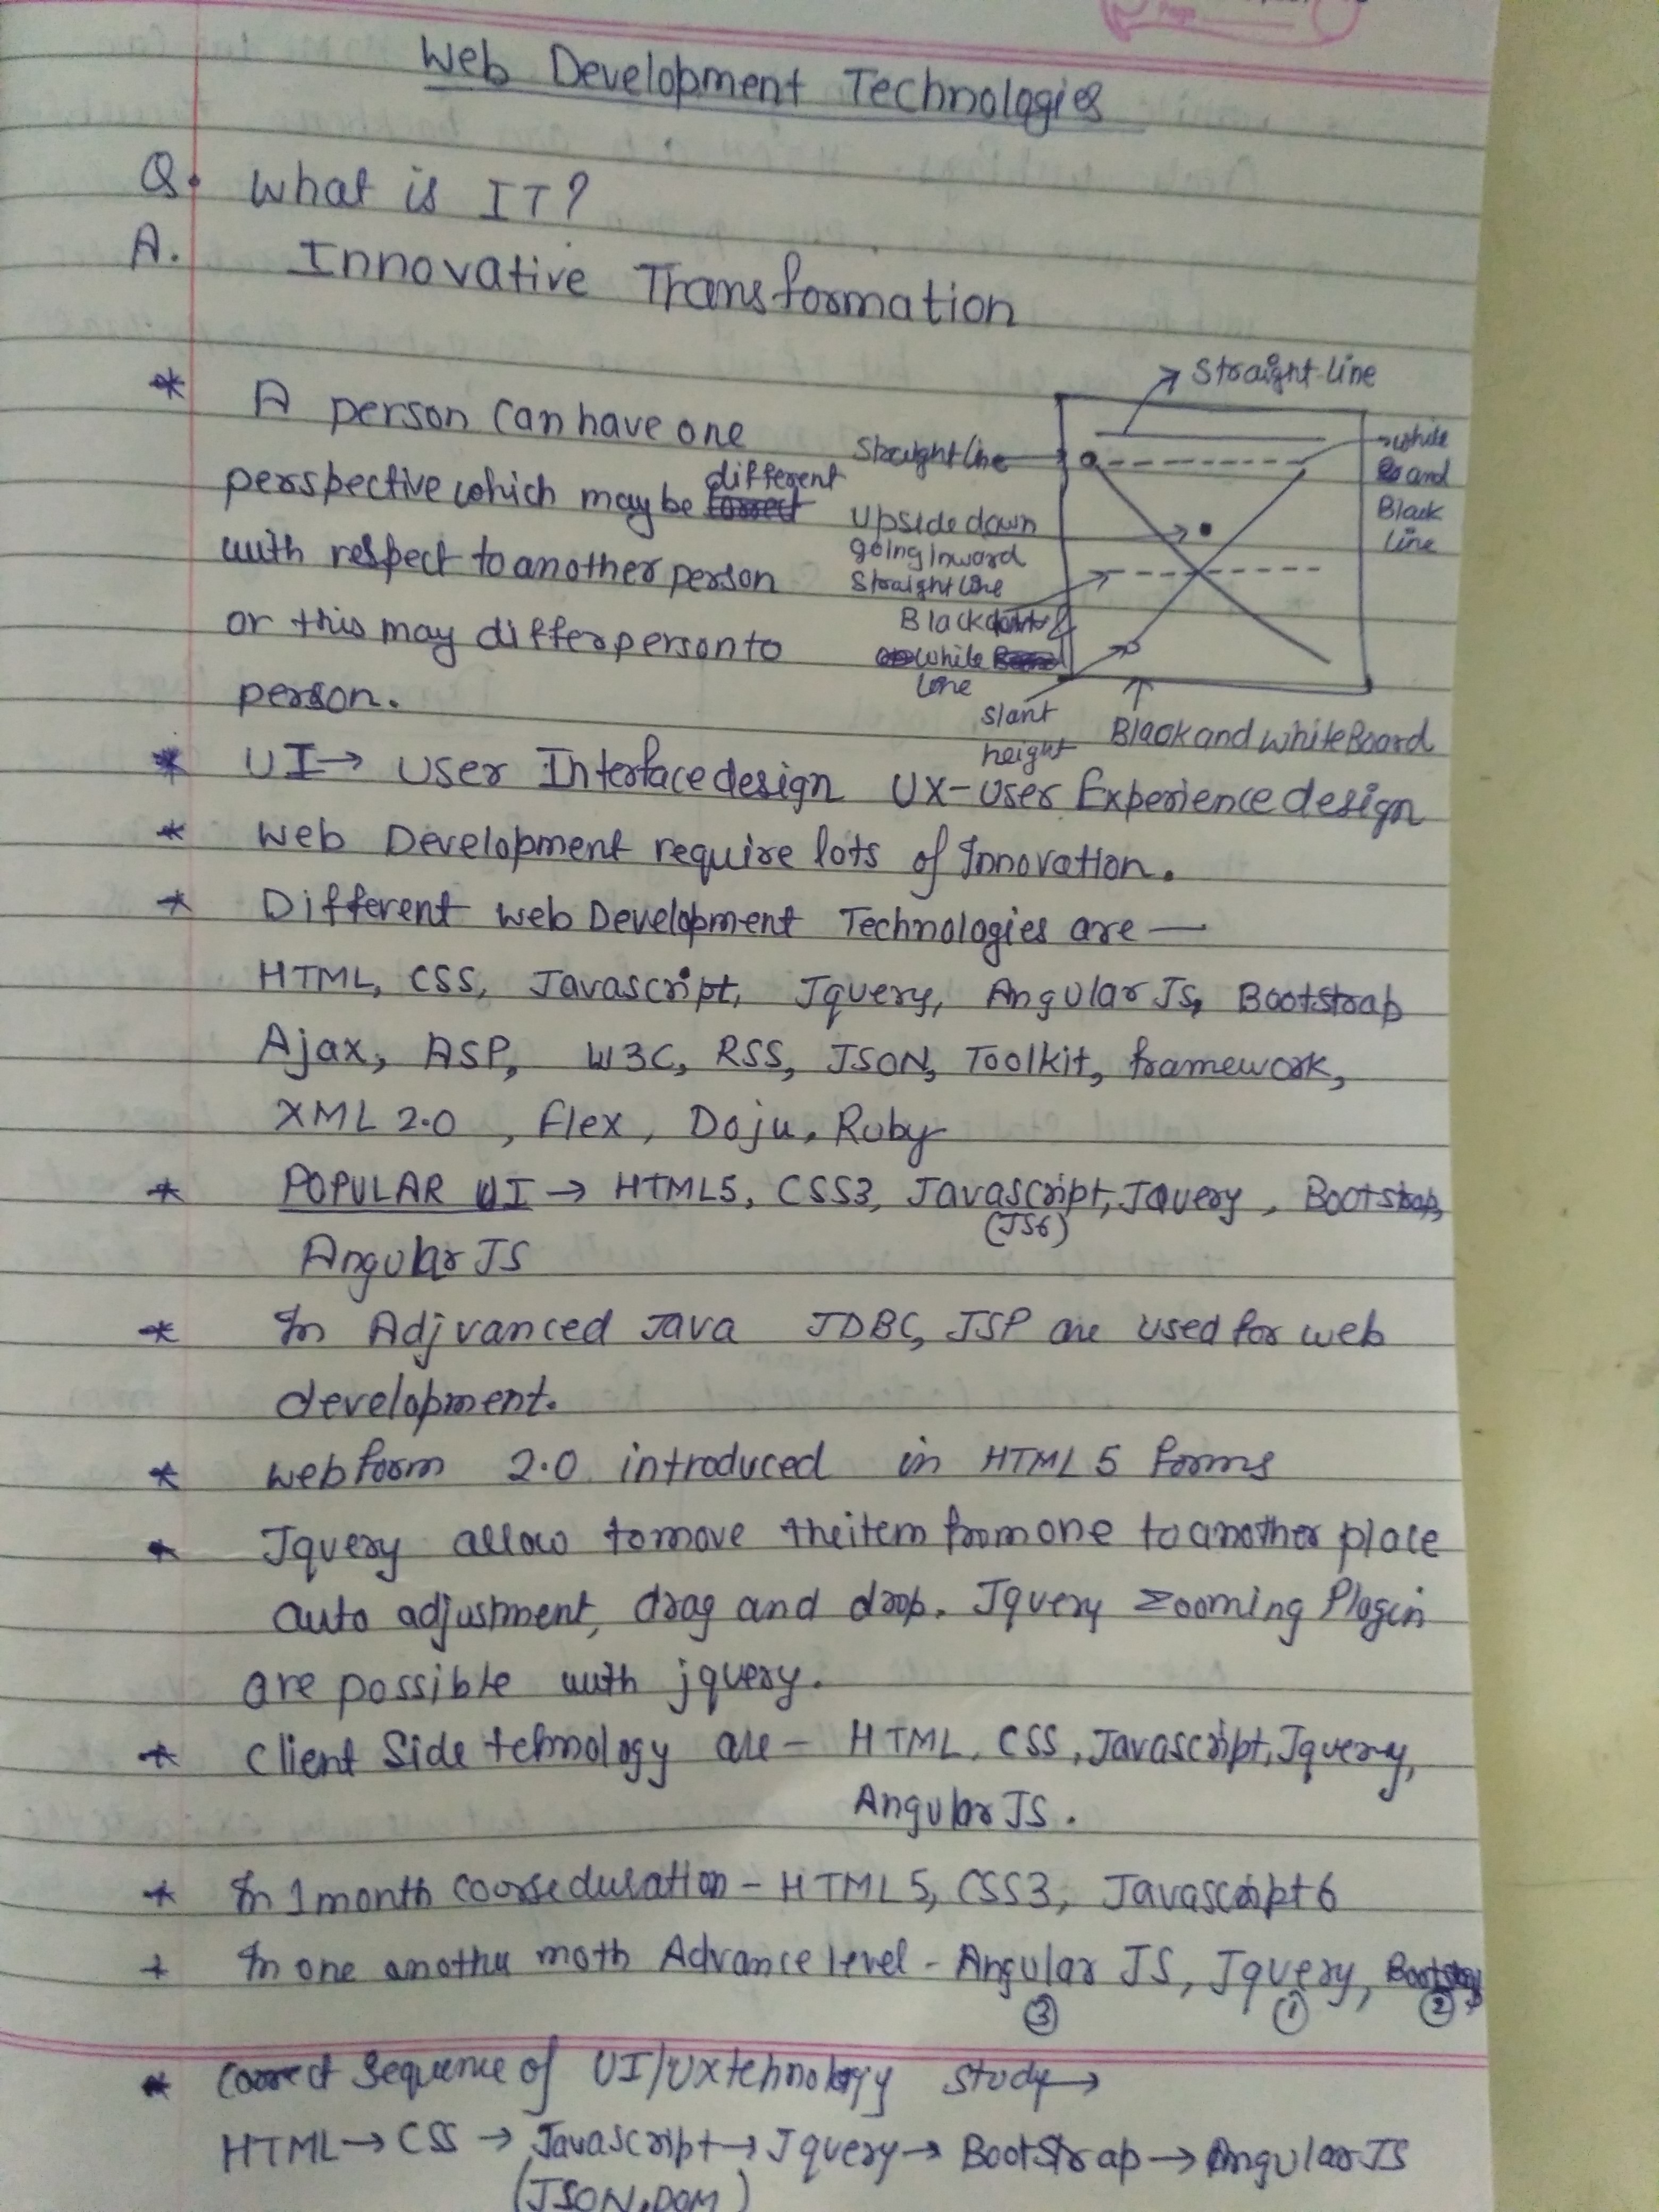 Page
Web Development Technologies
Q. What is IT?
A. Innovative Transformation
* A person can have one
perspective which may be different
with respect to another person
or this may differ person to
person.
Straight line
Straight line
white
and
Black
line
Upside down
going Inward
Straight line
Black
white
line
slant
height
Black and white Board
* UI → User Interface design UX - User Experience design
* Web Development require lots of Innovation.
* Different web Development Technologies are —
HTML, CSS, Javascript, Jquery, Angular JS, Bootstrap
Ajax, ASP, W3C, RSS, JSON, Toolkit, framework,
XML 2.0 , Flex, Doju, Ruby
* POPULAR UI → HTML5, CSS3, Javascript, JQuery , Bootstrap,
(JS6)
Angular JS
* In Adjvanced Java JDBC, JSP are used for web
development.
* webform 2.0 introduced in HTML 5 forms
* Jquery allow to move the item from one to another place
auto adjustment, drag and drop. Jquery zooming Plagin
are possible with jquery.
* Client Side tehnology are - HTML, CSS, Javascript, Jquery,
Angular JS.
* In 1 month course duration - HTML 5, CSS3, Javascript 6
+ In one another moth Advance level - Angular JS, Jquery, Bootstrap
③ ① ②
* Correct Sequence of UI/UX tehnology study →
HTML → CSS → Javascript → Jquery → BootStrap → Angular JS
(JSON, DOM)